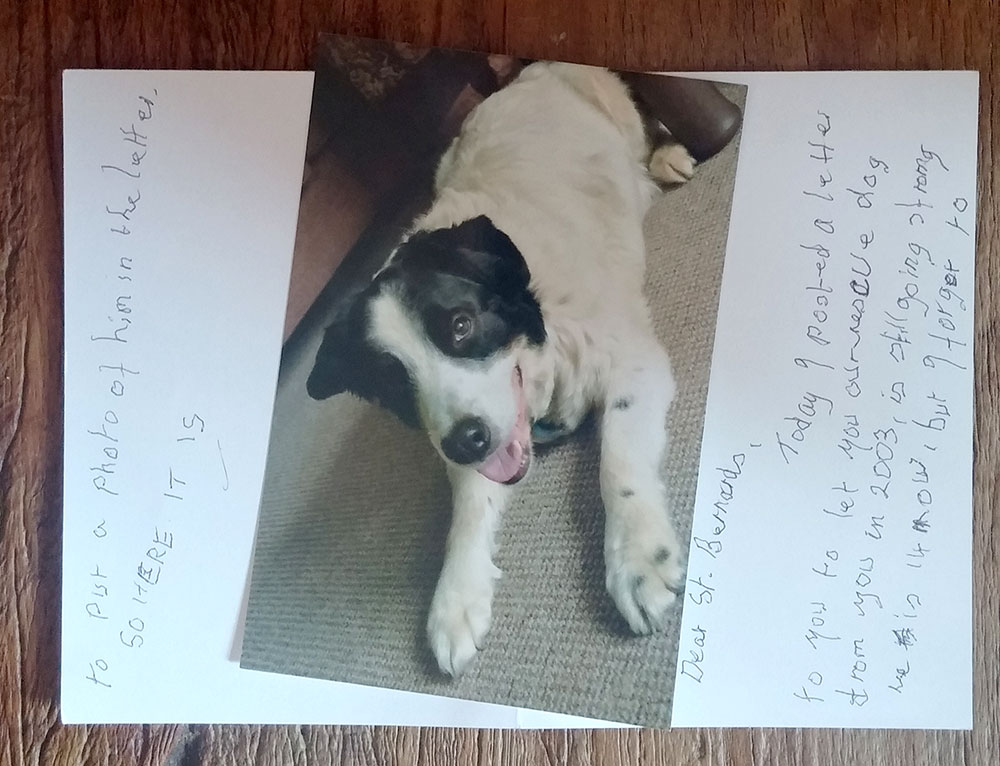 Dear St. Bernards,
Today I posted a letter
to you to let you our rescue dog
from you in 2003, is still going strong
he is 14 now, but I forgot to
to put a photo of him in the letter.
SO HERE IT IS